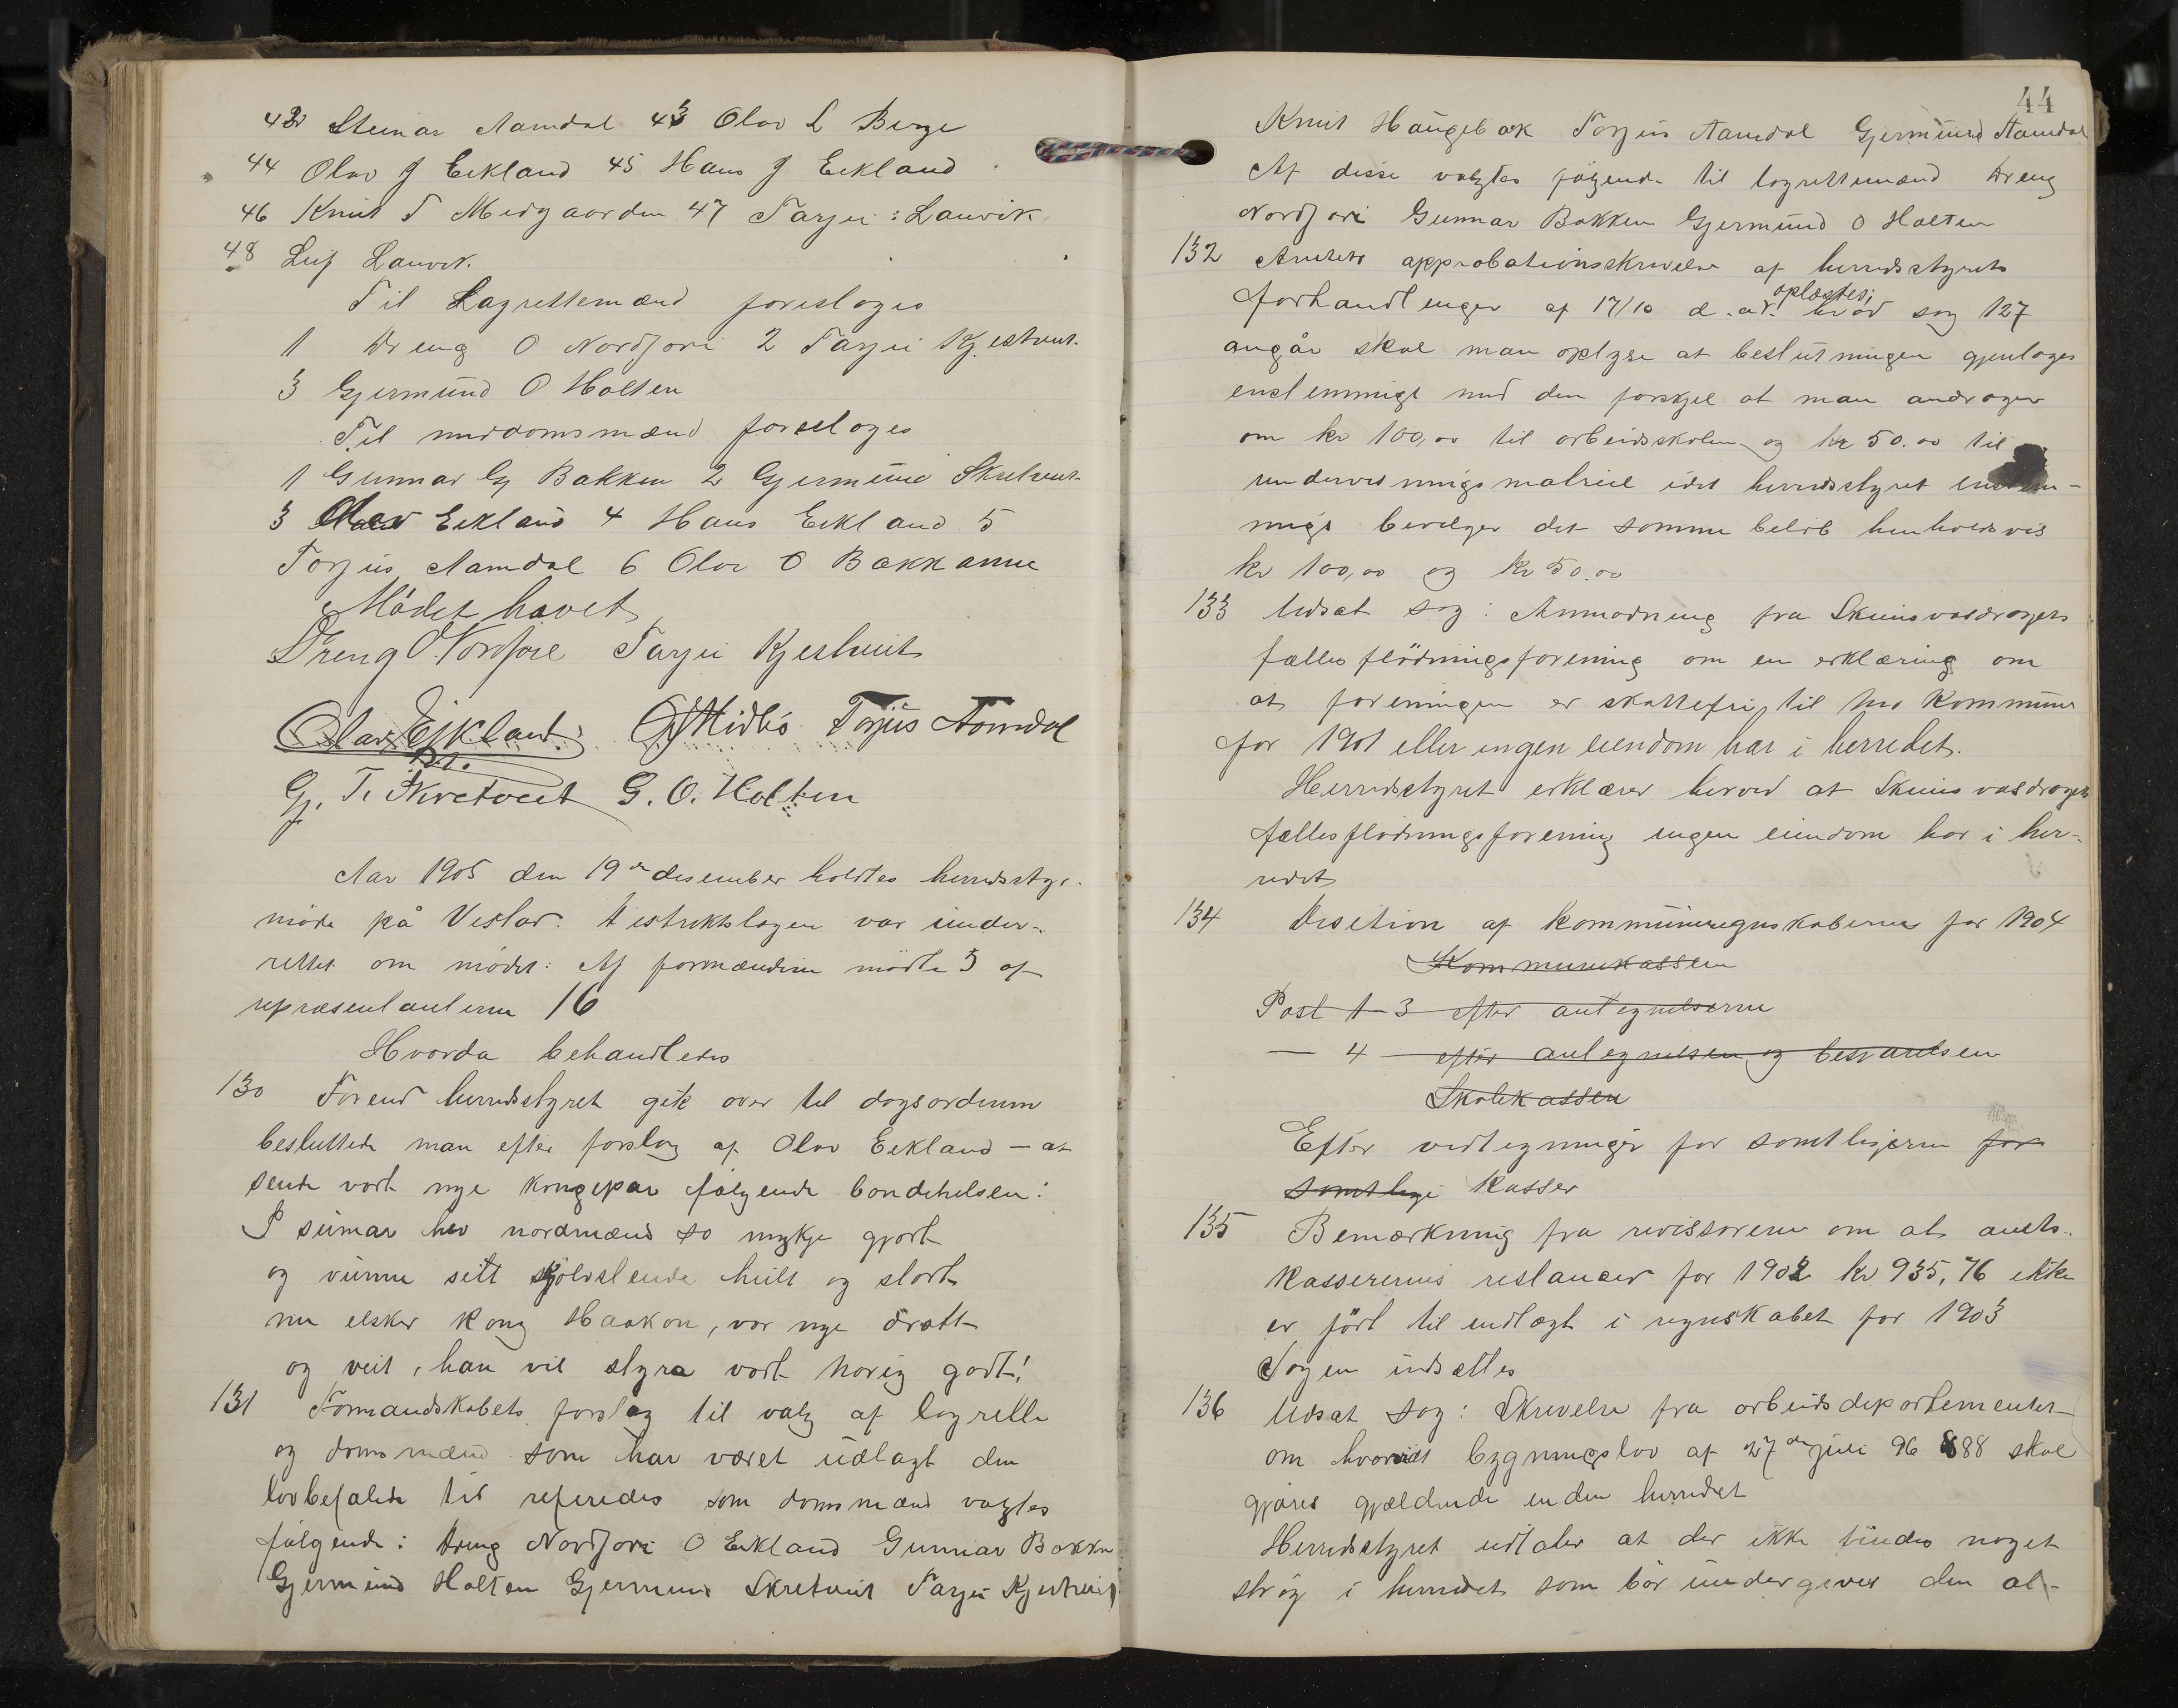 42 Steinar Aamdal 43 Olav L Berge
44 Olav J Eekland 45 Hans J Eekland
46 Knut T Midgaarden 47 Tarjei : Lauvik
48 Leif Lauvik.
Til Lagrettemænd foresloges
1 Dreng O Nordjore 2 Tarjei Kjestveit
3 Gjermund O Holten
Til meddomsmænd foresloges
1 Gunnar Gj Bakken 2 Gjermund Skretveit
3 Olav Eekland 4 Hans Eekland 5
Torjus Aamdal 6 Olav O Bakkane
Mödet hævet
Dreng O. Nordjore Tarjei Kjestveit
Olav Eikland. G Midbö Torjus Aamdal
Gj. T. Skretveit G. O. Holten
Aar 1905 den 19de desember holdtes herredssty.
möde på Vestad. Distriktslægen var under-
rettet om mödet: Af formændene mödte 3 af
repræsentanterne 16
Hvorda behandledes
130 Förend herredsstyret gik over til dagsordenen
besluttede man efter forslag af Olav Eekland – at
sende vort nye kongepar fölgende bondehelsen:
I sumar hev nordmænd so mykje gjort
og vunne sitt sjölvstende heilt og stort
nu elsker kong Haakon, vor nye drott
og veit, han vil styra vort Norig godt!
131 Formandskabets forslag til valg af lagrette
og domsmænd som har været udlagt den
lovbefalede tid refereredes som domsmænd valgtes
fölgende: Dreng Nordjore O Eekland Gunnar Bakken
Gjermund Holten Gjermund Skretveit Tarjei Kjestveit
44
Knut Haugebak Torjus Aamdal Gjermund Aamdal
Af disse valgtes fölgende til lagrettemænd Dreng
Nordjore Gunnar Bakken Gjermund O Holten
132 Amtets approbationsskrivelse af herredsstyrets
oplæstes;
forhandlinger af 17/10 d. år. hvad sag 127
angår skal man oplyse at beslutningen gjentages
enstemmigt med den forskjel at man andrager
om kr 100,00 til arbeidsskolen og kr 50.00 til
undervisningsmatriel idet herredsstyret enstem-
migt bevilger det samme belöb henholdsvis
kr 100,00 og kr 50.00
133 Udsat sag: Anmodning fra Skiensvasdragets
fælles flödningsforening om en erklæring om
at foreningen er skattefri til Mo Kommune
for 1901 eller ingen eiendom har i herredet.
Herredsstyret erklærer herved at Skiensvasdragets
fællesflödningsforening ingen eiendom har i her-
redet
134 Desition af kommuneregnskaberne for 1904
Kommunekassen
Post 1–3 efter antegnelserne
— 4 — efter antegnelsen og besvarelsen
Skolekassen
Efter vedtegninger for samtligerne for
samtlige kasser
135 Bemærkning fra revisorerne om at amts-
kassererens restancer for 1902 kr 935,76 ikke
er fört til indtægt i regnskabet for 1903
Sagen udsættes
136 Udsat sag: Skrivelse fra arbeidsdepartementet
om hvorvidt bygningslov af 27de juli 96 § 88 skal
gjöres gjældende enden herredet
Herredsstyret udtaler at der ikke findes noget
strög i herredet som bör undergives den al-